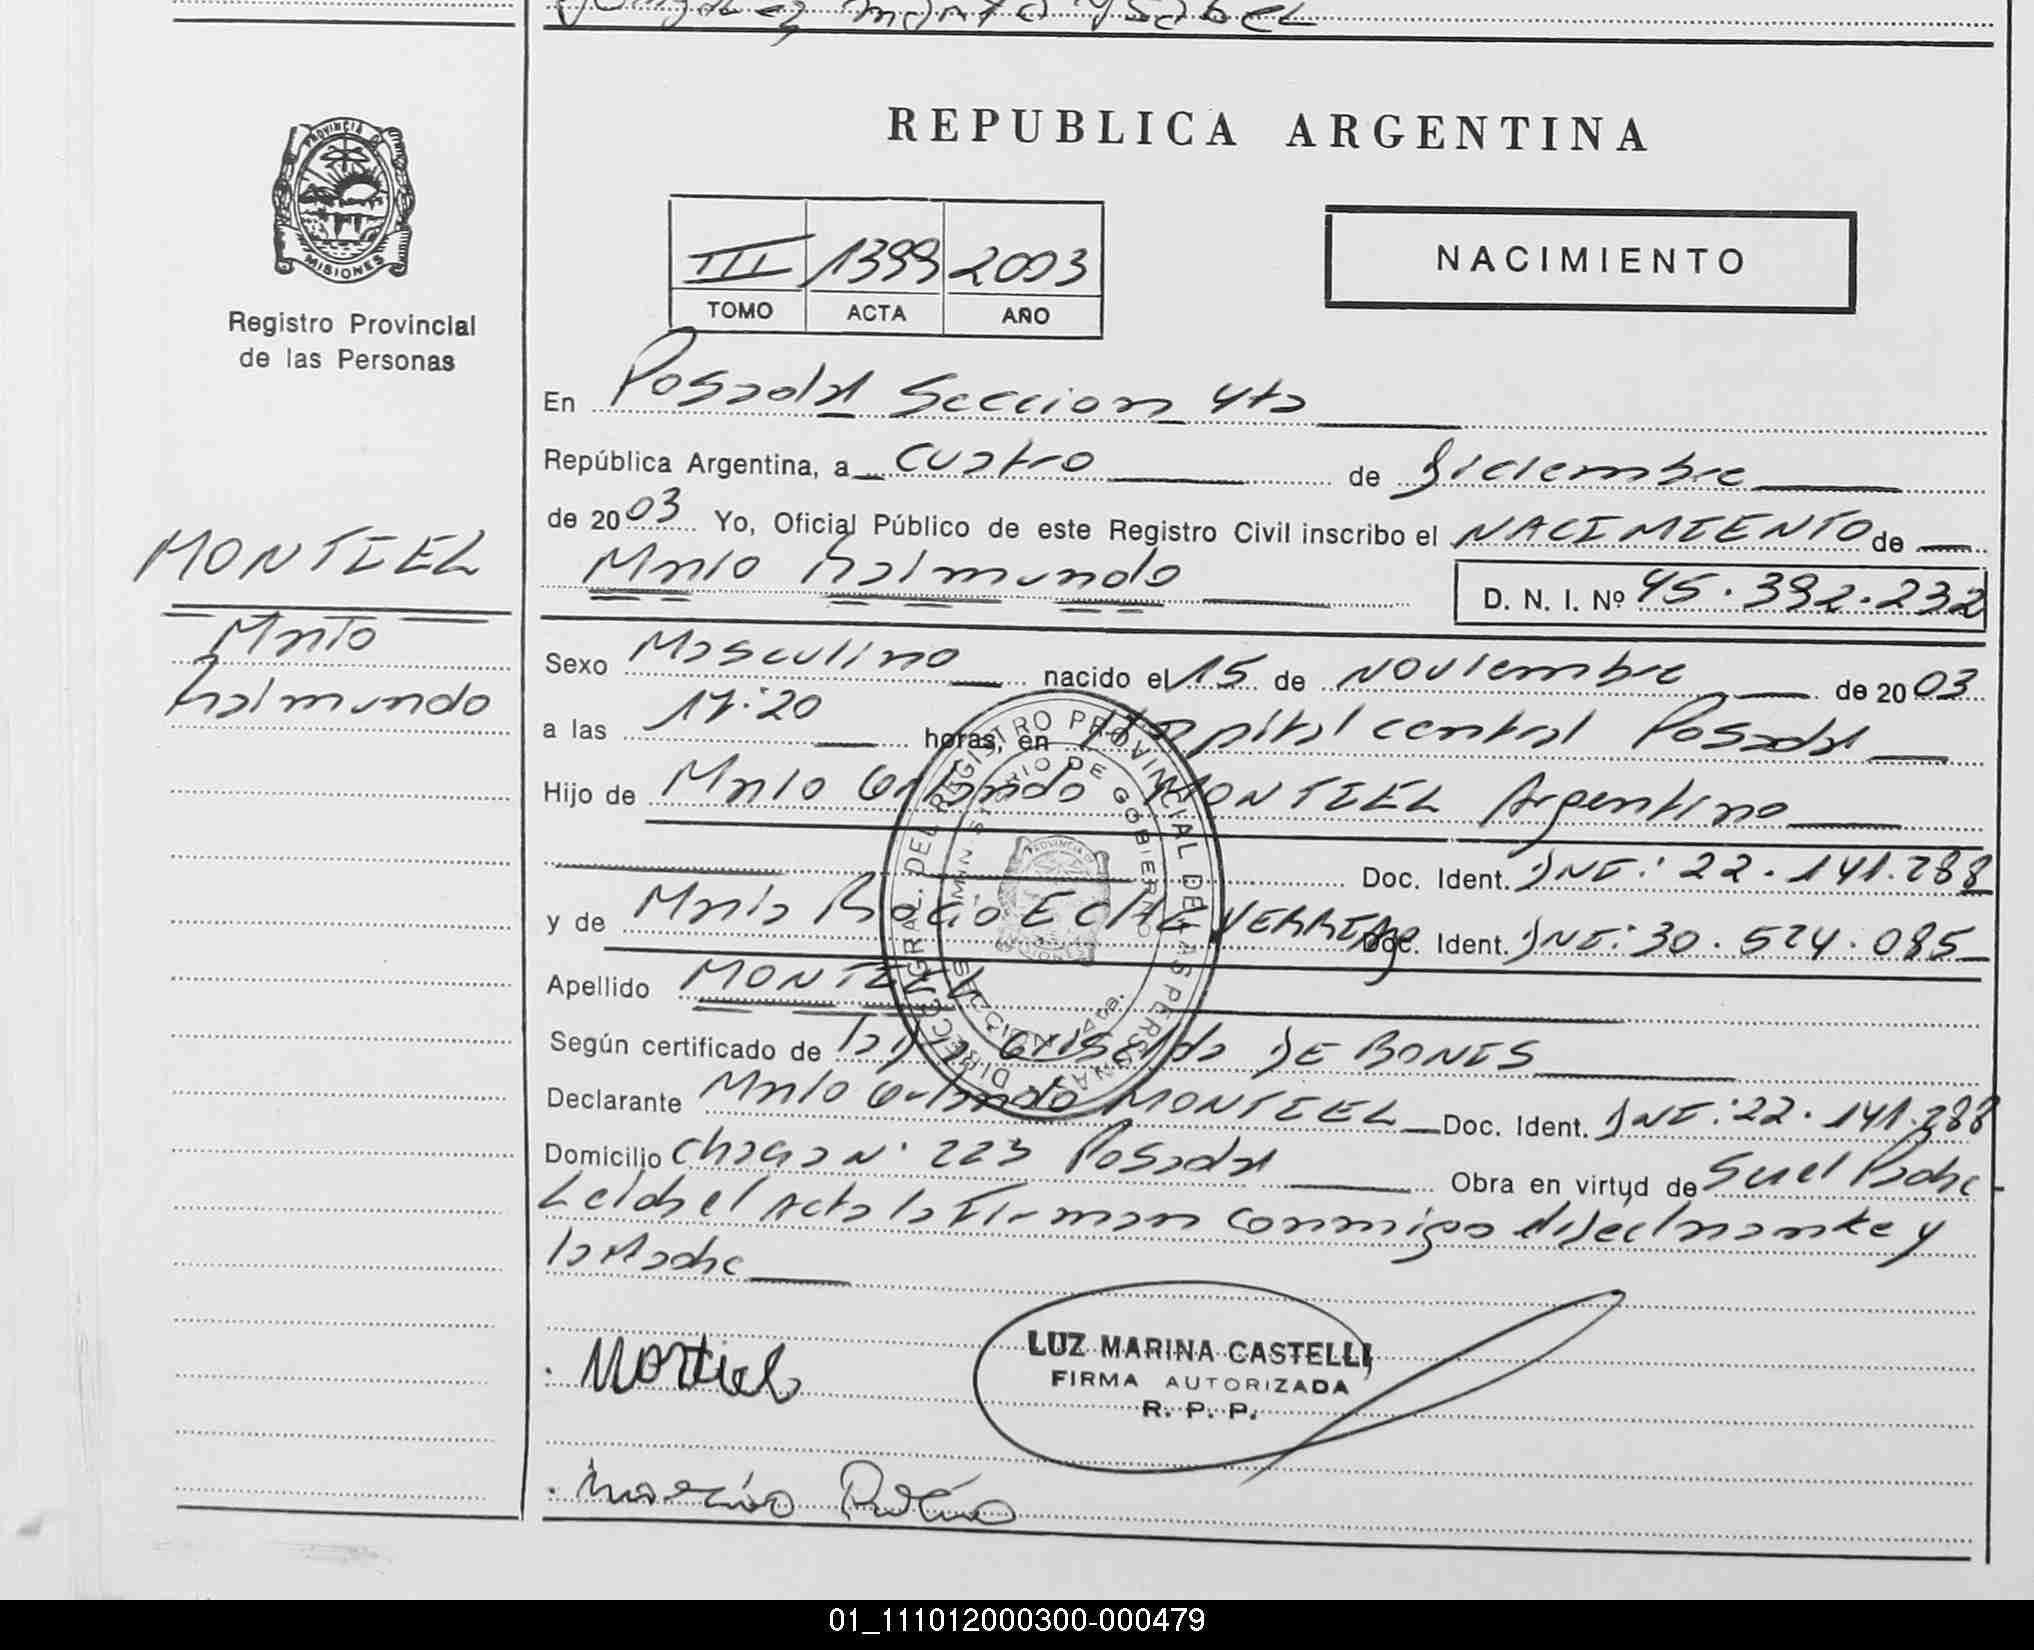 Gonzalez, Maria Ysabel
REPUBLICA ARGENTINA
PROVINCIA DE
MISIONES
Registro Provincial
de las Personas
III 1399 2003
TOMO ACTA AÑO
NACIMIENTO
En Posadas Seccion 4ta
República Argentina, a cuatro de Diciembre
de 2003 Yo, Oficial Público de este Registro Civil inscribo el NACIMIENTO de
Mario Raimundo D. N. I. Nº 45.392.232
MONTIEL
Mario
Raimundo
Sexo Masculino nacido el 15 de Noviembre de 2003
a las 17:20 horas, en Hospital central Posadas
Hijo de Mario Orlando MONTIEL Argentino
Doc. Ident. DNI: 22.141.288
y de María Rocío ECHEVERRIA Doc. Ident. DNI: 30.524.085
Apellido MONTIEL
Según certificado de la Griselda DE BONIS
Declarante Mario Orlando MONTIEL Doc. Ident. DNI: 22.141.288
Domicilio Chacra Nº 223 Posadas Obra en virtud de Ser el Padre
Leida el Acta la Firman conmigo el Declarante y
la Madre
DIRECC. GRAL. DEL REGISTRO PROVINCIAL DE LAS PERSONAS
MINISTERIO DE GOBIERNO
Montiel
LUZ MARINA CASTELLI
FIRMA AUTORIZADA
R. P. P.
01_111012000300-000479